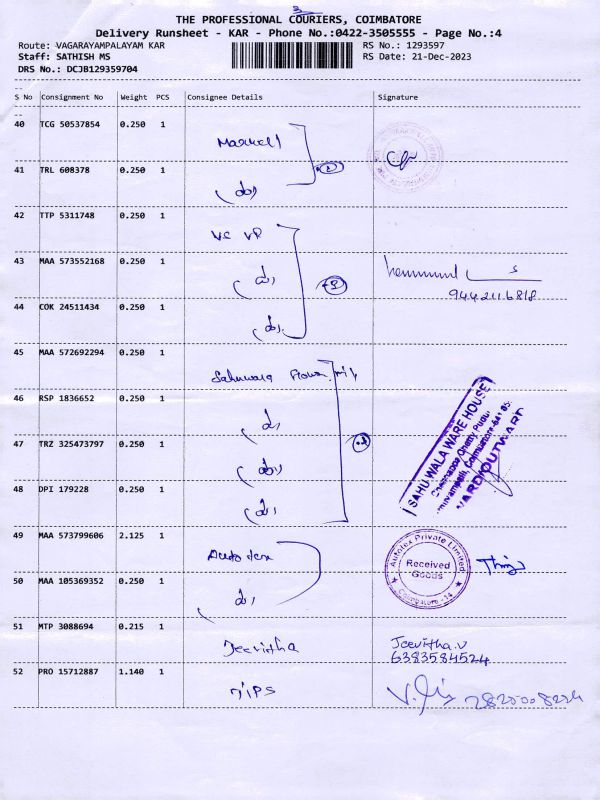 3
THE PROFESSIONAL COURIERS, COIMBATORE
Delivery Runsheet - KAR - Phone No.:0422-3505555 - Page No.:4
Route: VAGARAYAMPALAYAM KAR RS No.: 1293597
Staff: SATHISH MS RS Date: 21-Dec-2023
DRS No.: DCJB129359704
S No Consignment No Weight PCS Consignee Details Signature
40 TCG 50537854 0.250 1
41 TRL 608378 0.250 1
42 TTP 5311748 0.250 1
43 MAA 573552168 0.250 1
9442116818
44 COK 24511434 0.250 1
45 MAA 572692294 0.250 1
46 RSP 1836652 0.250 1
47 TRZ 325473797 0.250 1
48 DPI 179228 0.250 1
SAHUWALA WARE HOUSE
49 MAA 573799606 2.125 1
Autotex Private Limited
Received
Goods
Coimbatore - 14
50 MAA 105369352 0.250 1
51 MTP 3088694 0.215 1 Jeevitha Jeevitha.v
6383584524
52 PRO 15712887 1.140 1 TIPS